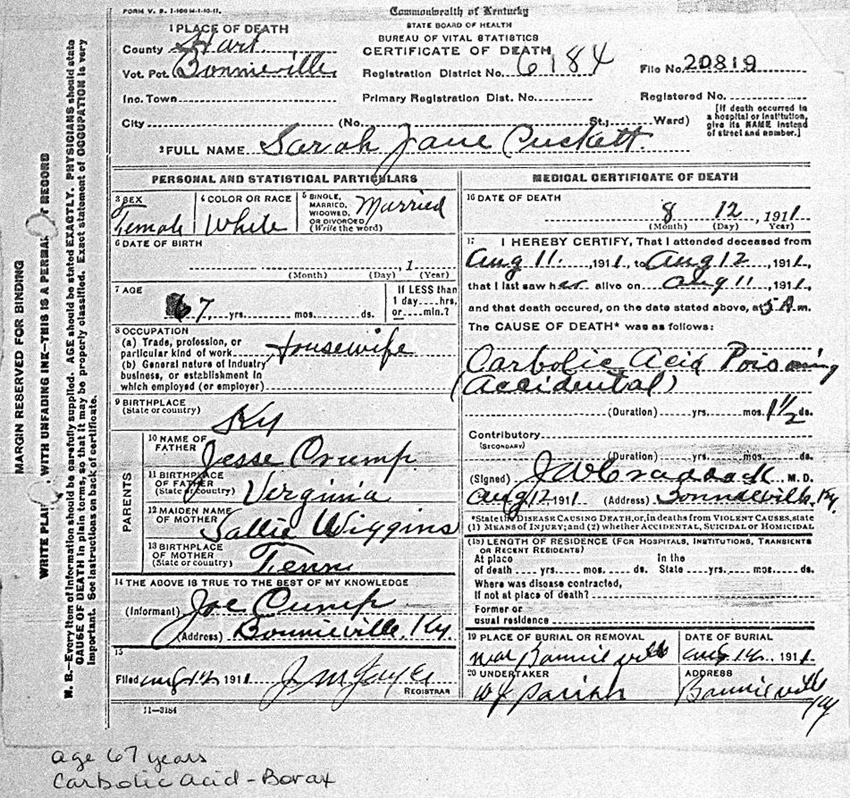 FORM V. S. 1-
Commonwealth of Kentucky
STATE BOARD OF HEALTH
BUREAU OF VITAL STATISTICS
CERTIFICATE OF DEATH
1 PLACE OF DEATH
County Hart
Vot. Pct. Bonnieville
Registration District No. 6184
File No. 20819
Inc. Town
Primary Registration Dist. No.
Registered No.
City
(No.
St.;
Ward)
[If death occurred in a hospital or institution, give its NAME instead of street and number.]
2 FULL NAME Sarah Jane Puckett
PERSONAL AND STATISTICAL PARTICULARS
3 SEX
Female
4 COLOR OR RACE
White
5 SINGLE, MARRIED, WIDOWED, OR DIVORCED (Write the word)
Married
6 DATE OF BIRTH
, 1
(Month) (Day) (Year)
7 AGE
67 yrs. mos. ds.
If LESS than 1 day....hrs. or....min.?
8 OCCUPATION
(a) Trade, profession, or particular kind of work Housewife
(b) General nature of industry business, or establishment in which employed (or employer)
9 BIRTHPLACE
(State or country) Ky
PARENTS
10 NAME OF FATHER Jesse Crump
11 BIRTHPLACE OF FATHER (State or country) Verginia
12 MAIDEN NAME OF MOTHER Sallie Wiggins
13 BIRTHPLACE OF MOTHER (State or country) Tenn
14 THE ABOVE IS TRUE TO THE BEST OF MY KNOWLEDGE
(Informant) Joe Cump
(Address) Bonnieville, Ky.
15
Filed Aug 12 1911
REGISTRAR
11-3184
MEDICAL CERTIFICATE OF DEATH
16 DATE OF DEATH
8 12, 1911
(Month) (Day) Year)
17 I HEREBY CERTIFY, That I attended deceased from
Aug 11, 1911, to Aug 12, 1911,
that I last saw her alive on Aug 11, 1911,
and that death occured, on the date stated above, at 5 A.m.
The CAUSE OF DEATH* was as follows:
Carbolic Acid Poisoning
(Accidental)
(Duration) yrs. mos. 1 1/2 ds.
Contributory
(SECONDARY)
(Duration) yrs. mos. ds.
(Signed) J W Craddock M. D.
Aug 12 1911 (Address) Bonnieville, Ky.
*State the DISEASE CAUSING DEATH, or, in deaths from VIOLENT CAUSES, state
(1) MEANS OF INJURY; and (2) whether ACCIDENTAL, SUICIDAL or HOMICIDAL
(18) LENGTH OF RESIDENCE (FOR HOSPITALS, INSTITUTIONS, TRANSIENTS
OR RECENT RESIDENTS)
At place of death yrs. mos. ds. In the State yrs. mos. ds.
Where was disease contracted,
If not at place of death?
Former or
usual residence
19 PLACE OF BURIAL OR REMOVAL
near Bonnieville
DATE OF BURIAL
Aug 12, 1911
20 UNDERTAKER
W J Parish
ADDRESS
Bonnieville Ky
MARGIN RESERVED FOR BINDING
WRITE PLAI , WITH UNFADING INK—THIS IS A PERMA T RECORD
N. B.—Every item of information should be carefully supplied. AGE should be stated EXACTLY. PHYSICIANS should state
CAUSE OF DEATH in plain terms, so that it may be properly classified. Exact statement of OCCUPATION is very
important. See instructions on back of certificate.
age 67 years
Carbolic Acid - Borax